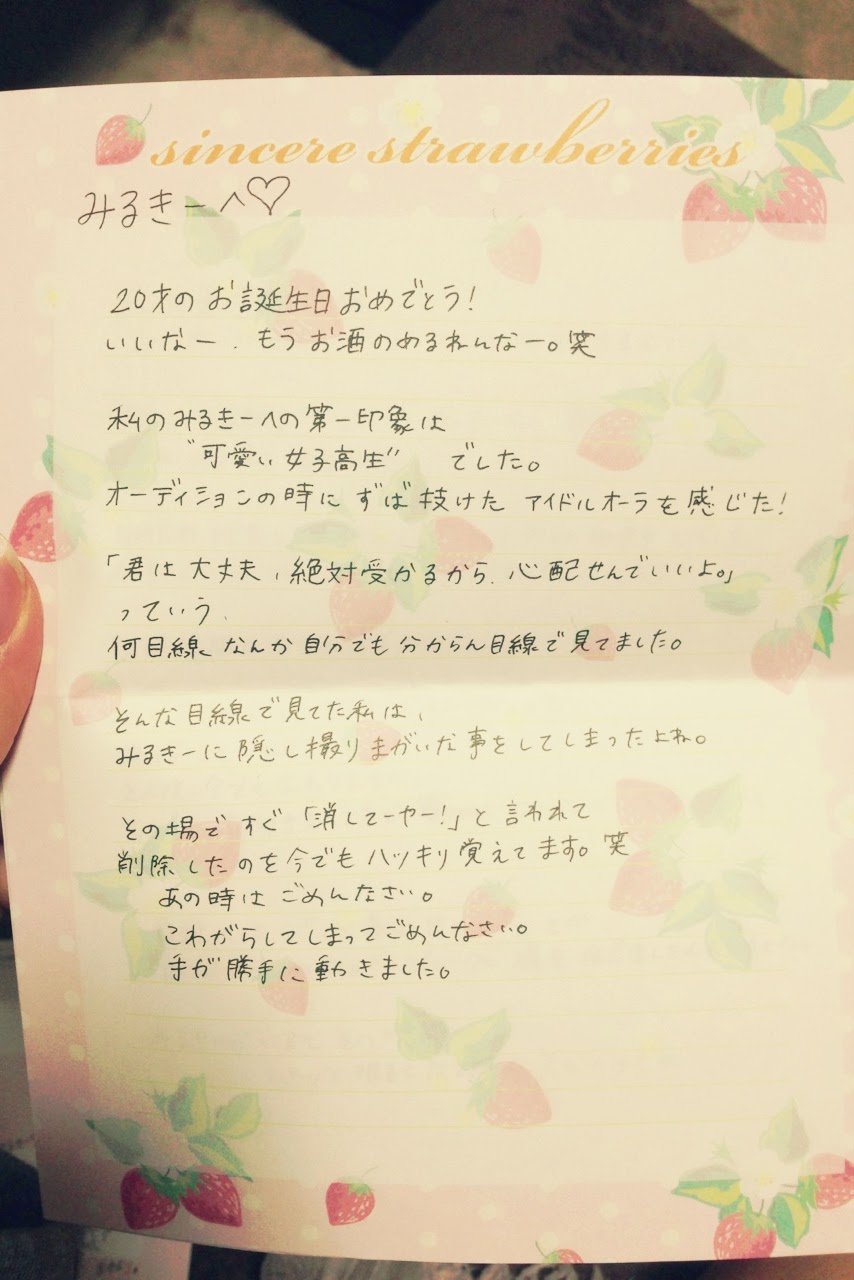 sincere strawberries
みるきーへ♡
20才のお誕生日おめでとう!
いいなー、もうお酒のめるねんなー。笑
私のみるきーへの第一印象は
"可愛い女子高生" でした。
オーディションの時にずば抜けたアイドルオーラを感じた!
「君は大丈夫、絶対受かるから、心配せんでいいよ。」
っていう、
何目線なんか自分でも分からん目線で見てました。
そんな目線で見てた私は、
みるきーに隠し撮りまがいな事をしてしまったよね。
その場ですぐ「消してーやー!」と言われて
削除したのを今でもハッキリ覚えてます。笑
あの時はごめんなさい。
こわがらしてしまってごめんなさい。
手が勝手に動きました。